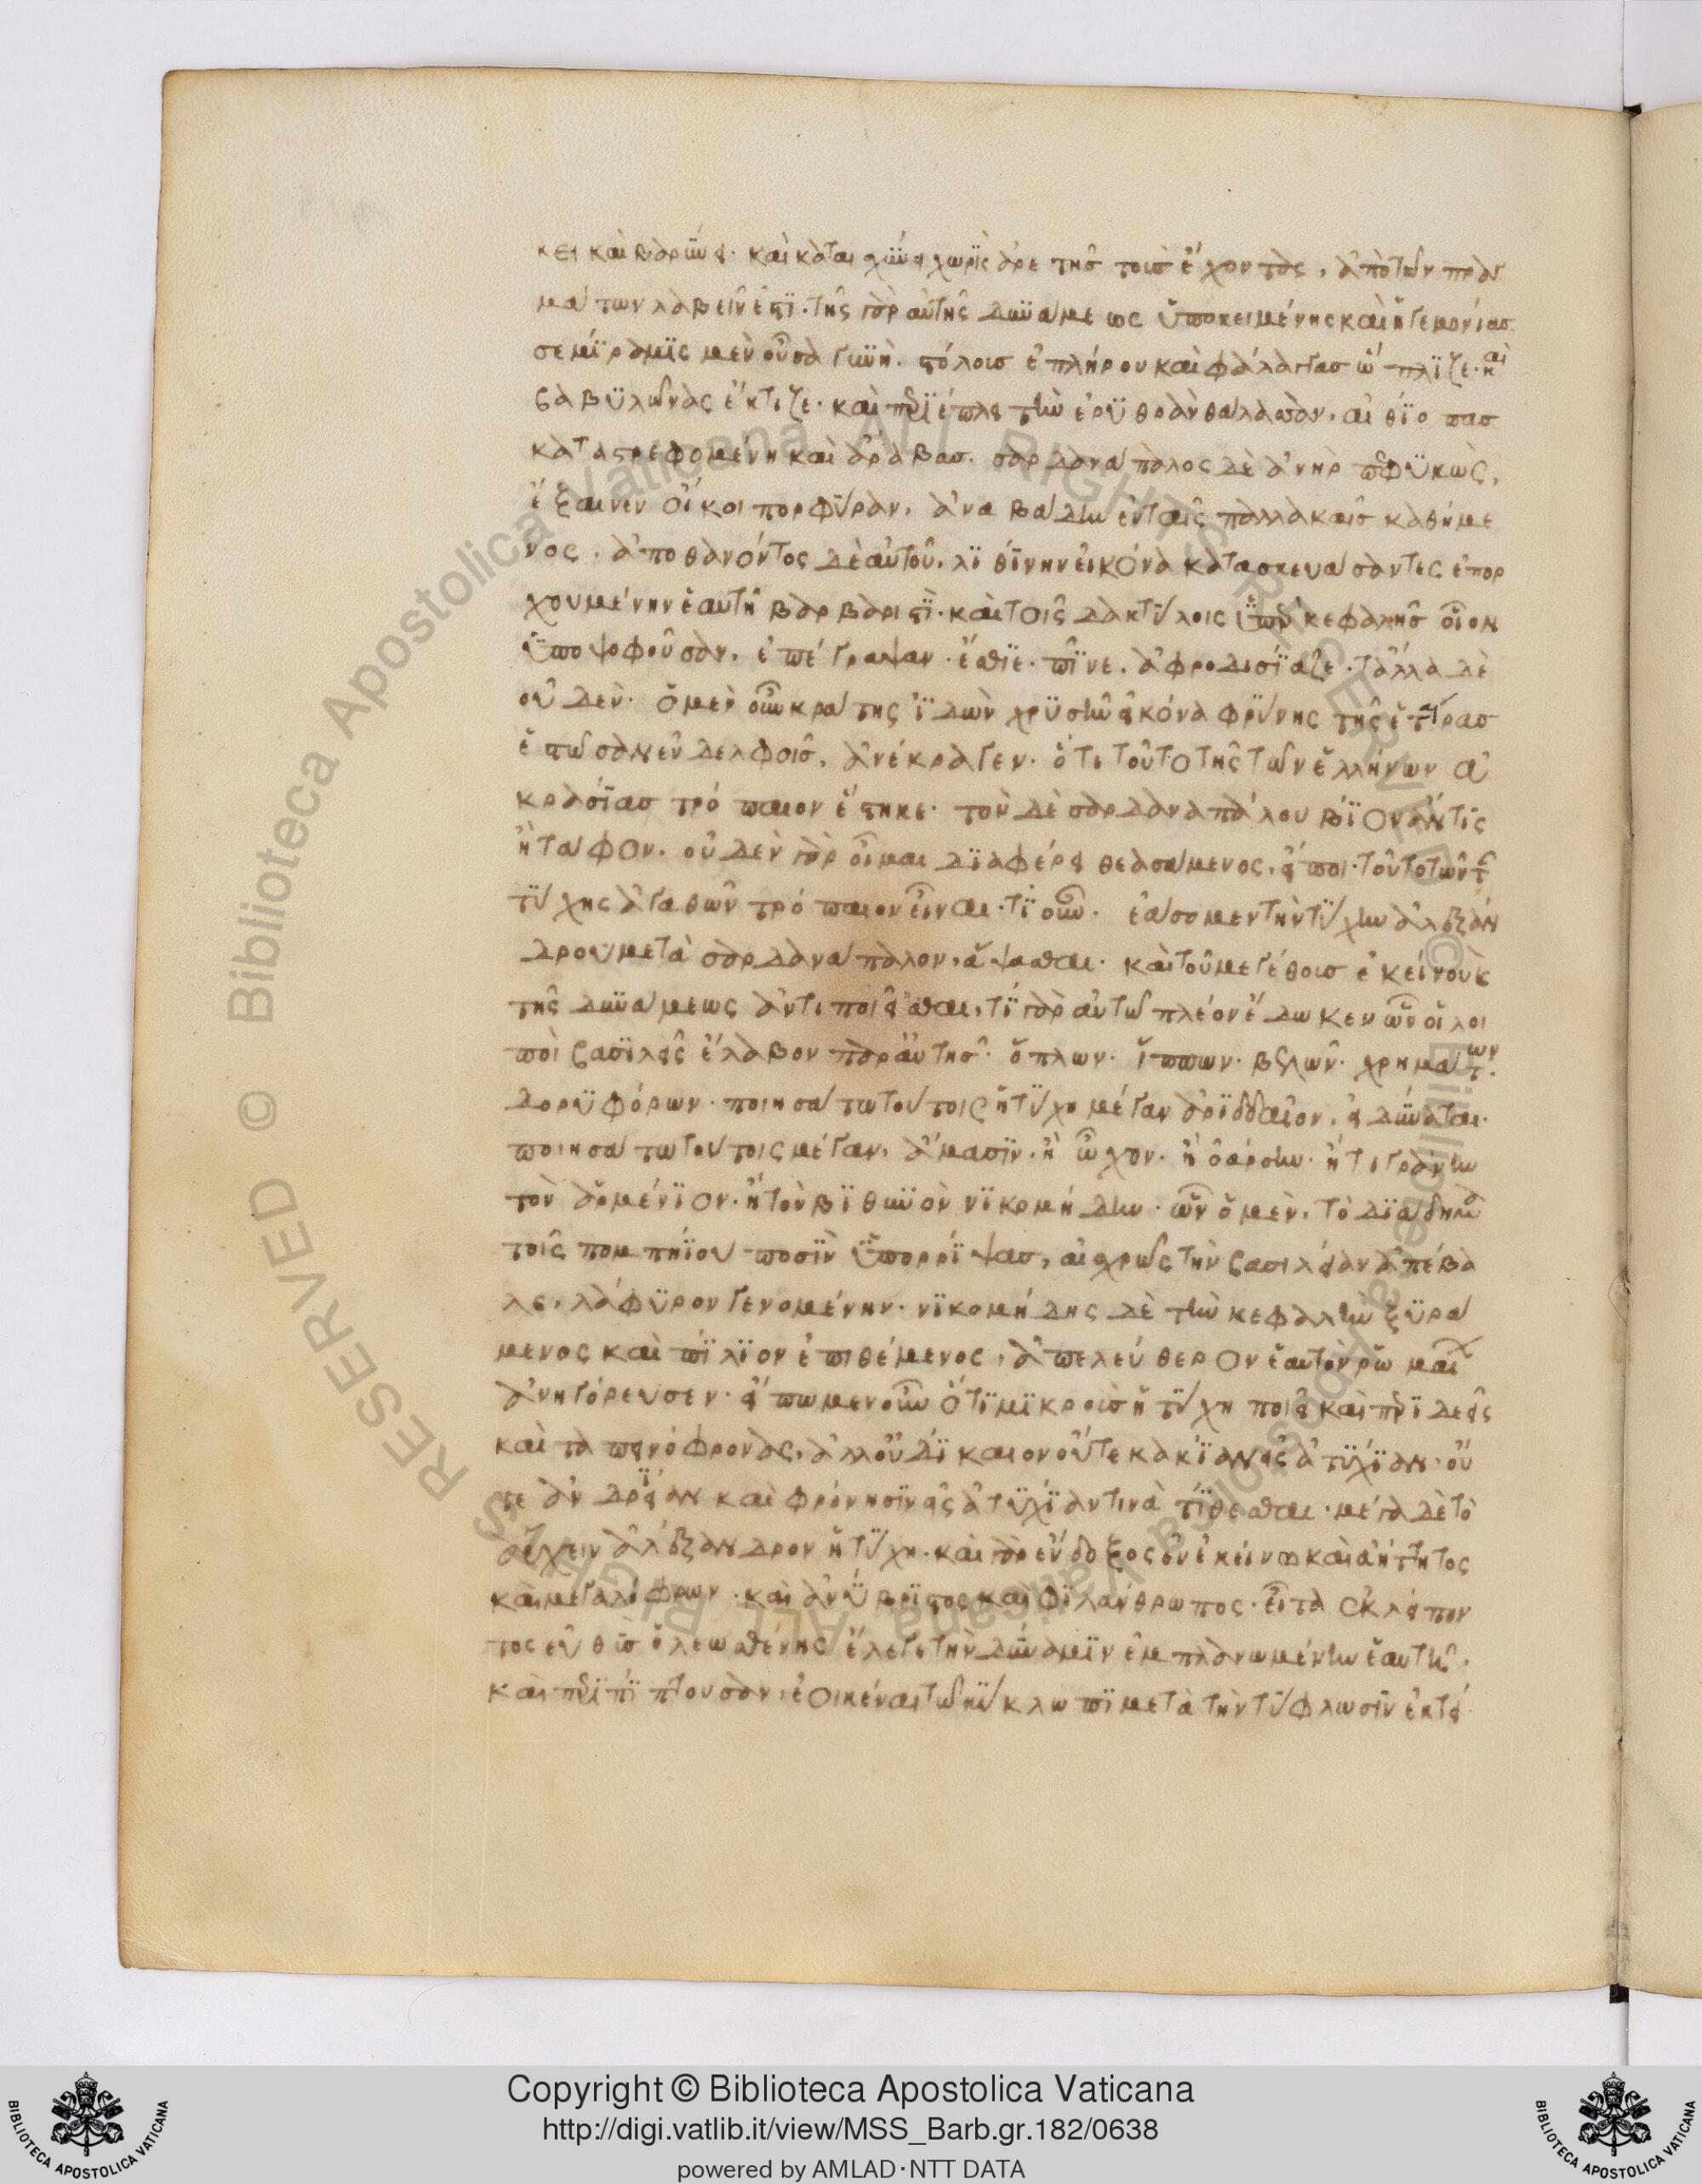 κει καὶ βαρύνει· καὶ καταισχύνει χωρὶς ἀρετῆς τοὺς ἔχοντας, ἀπὸ τῶν πραγ
μάτων λαβεῖν ἐστι. τῆς γὰρ αὐτῆς δυνάμεως ὑποκειμένης καὶ ἡγεμονίας
σεμίραμις μὲν οὖσα γυνὴ. στόλους ἐπλήρου καὶ φάλαγγας ὥπλιζε· καὶ
βαβυλῶνας ἔκτιζε· καὶ περιέπλει τὴν ἐρυθρὰν θάλασσαν, αἰθίοπας
καταστρεφομένη καὶ ἄραβας. σαρδανάπαλος δὲ ἀνὴρ πεφυκὼς,
ἔξαινεν οἴκοι πορφύραν, ἀναβάδην ἐν ταῖς παλλακαῖς καθήμε
νος. ἀποθανόντος δὲ αὐτοῦ, λιθίνην εἰκόνα κατασκευάσαντες ἐπορ
χουμένην ἑαυτῇ βαρβαριστὶ· καὶ τοῖς δακτύλοις ὑπὲρ κεφαλῆς οἷον
ὑποψοφοῦσαν, ἐπέγραψαν· ἔσθιε· πῖνε. ἀφροδισίαζε· τἄλλα δὲ
οὐδὲν· ὁ μὲν οὖν κράτης ἰδὼν χρυσῆν εἰκόνα φρύνης τῆς ἑταίρας
ἑστῶσαν ἐν δελφοῖς, ἀνέκραγεν· ὅτι τοῦτο τῆς τῶν ἑλλήνων ἀ
κρασίας τρόπαιον ἕστηκε· τὸν δὲ σαρδαναπάλου βίον ἄν τις
ἢ τάφον, οὐδὲν γὰρ οἶμαι διαφέρει θεασάμενος, εἴποι· τοῦτο τῶν τῆς
τύχης ἀγαθῶν τρόπαιον εἶναι· τί οὖν· ἐάσομεν τὴν τύχην ἀλεξάν
δρου μετὰ σαρδανάπαλον, ἅψασθαι· καὶ τοῦ μεγέθους ἐκείνου κ
τῆς δυνάμεως ἀντιποιεῖσθαι, τί γὰρ αὐτῷ πλέον ἔδωκεν ὧν οἱ λοι
ποὶ βασιλεῖς ἔλαβον παρ' αὐτῆς· ὅπλων· ἵππων· βελῶν· χρημάτων·
δορυφόρων· ποιησάτω τούτοις ἡ τύχη μέγαν ἀριδδαῖον, εἰ δύναται·
ποιησάτω τούτοις μέγαν, ἄμασιν· ἢ ὦχον· ἢ ὀάρσην· ἢ τιγράνην
τὸν ἀρμένιον· ἢ τὸν βιθυνὸν νικομήδην· ὧν ὁ μὲν, τὸ διάδημα
τοῖς πομπηίου ποσὶν ὑπορρίψας, αἰσχρῶς τὴν βασιλείαν ἀπέβα
λε, λάφυρον γενομένην· νικομήδης δὲ τὴν κεφαλὴν ξυρά
μενος καὶ πιλίον ἐπιθέμενος, ἀπελεύθερον ἑαυτὸν ῥωμαίων
ἀνηγόρευσεν· εἴπωμεν οὖν ὅτι μικροὺς ἡ τύχη ποιεῖ καὶ περιδεεῖς
καὶ ταπεινόφρονας, ἀλλ' οὐ δίκαιον οὔτε κακίαν εἰς ἀτυχίαν· οὔ
τε ἀνδρείαν καὶ φρόνησιν εἰς ἀτυχίαν τινὰ τίθεσθαι· μέγα δὲ τὸ
ἄρχειν ἀλέξανδρον ἡ τύχη· καὶ γὰρ ἔνδοξος ἐν ἐκείνῳ καὶ ἀήττητος
καὶ μεγαλόφρων· καὶ ἀνύβριστος καὶ φιλάνθρωπος· εἶτα ἐκλείπον
τος εὐθὺς ὁ λεωσθένης ἔλεγε τὴν δύναμιν ἐμπλανωμένην ἑαυτῇ·
καὶ περιπίπτουσαν, ἐοικέναι τῷ κύκλωπι μετὰ τὴν τύφλωσιν ἐκτεί
Copyright © Biblioteca Apostolica Vaticana
http://digi.vatlib.it/view/MSS_Barb.gr.182/0638
powered by AMLAD·NTT DATA